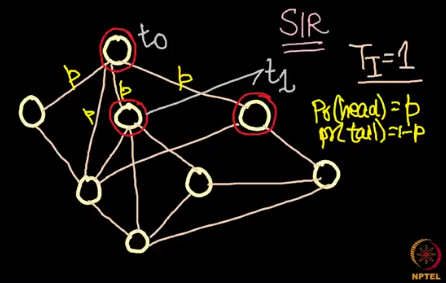 SIR
t0
T_I=1
p
p
p
p
t1
Pr(head)=p
pr(tail)=1-p
NPTEL